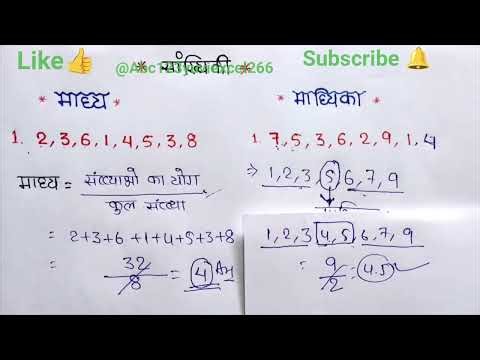 Like👍
Subscribe 🔔
* सांख्यिकी *
* माध्य *
1. 2, 3, 6, 1, 4, 5, 3, 8
माध्य = संख्याओ का योग
कुल संख्या
= 2+3+6+1+4+5+3+8
= 32/8 = 4 Ans
* माध्यिका *
1. 7, 5, 3, 6, 2, 9, 1, 4
⇒ 1, 2, 3, 5, 6, 7, 9
1, 2, 3 4, 5, 6, 7, 9
= 9/2 = 4.5